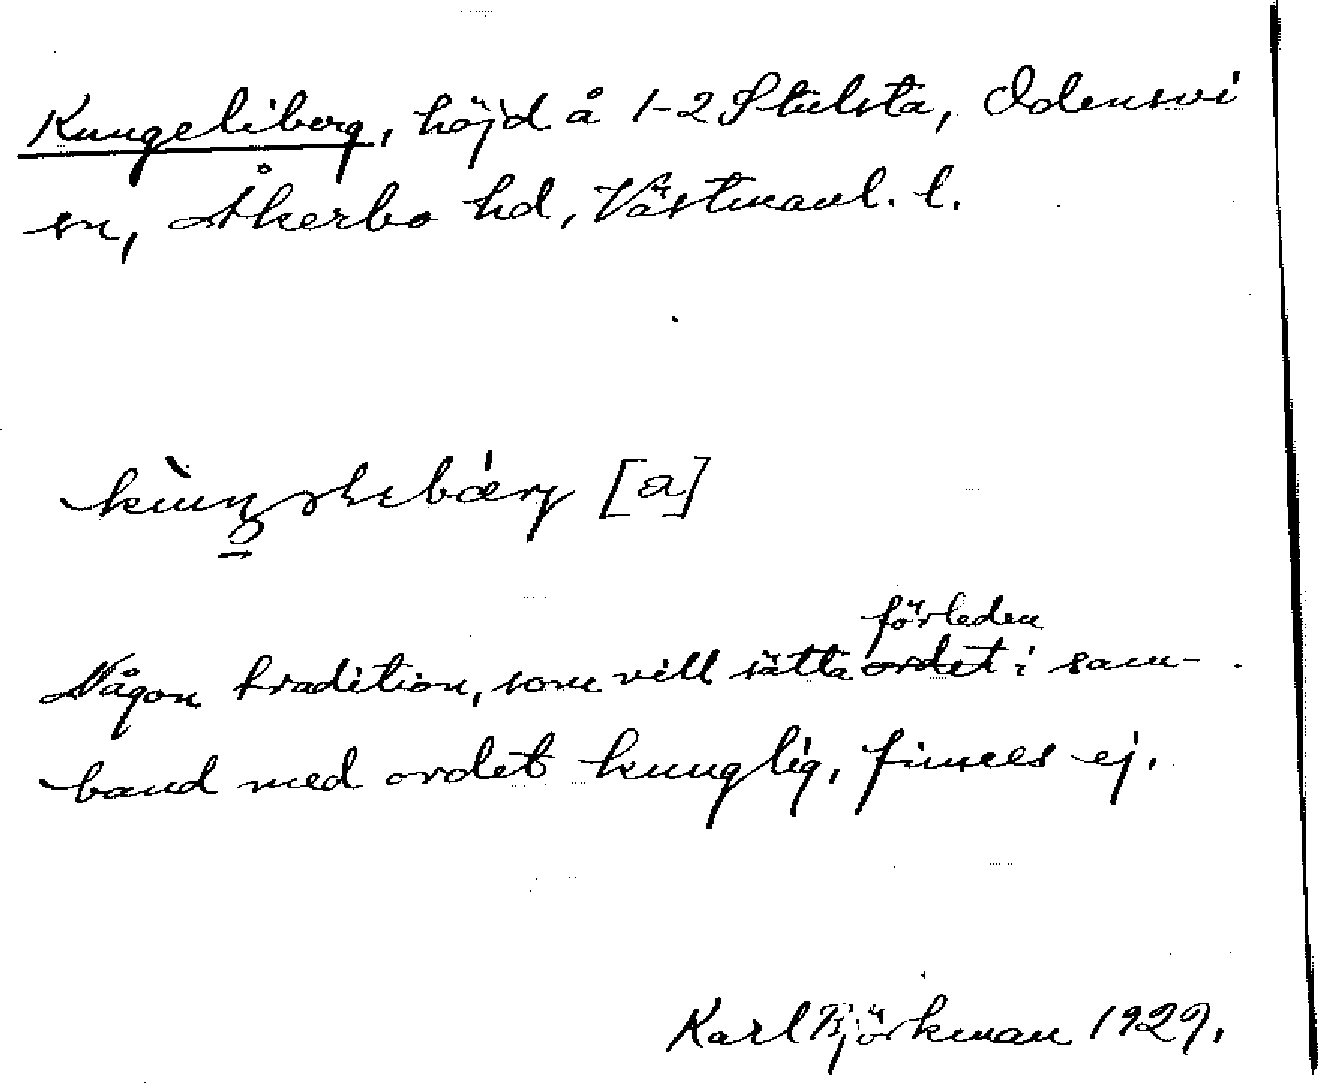 Kungeliberg, höjd å 1-2 Stalsta, Odensvi
sn, Åkerbo hd, Västmanl. l.
[a]
förleden
Någon tradition, som vill sätta ordet i sam-
band med ordet kunglig, finnes ej.
Karl Björkman 1929.